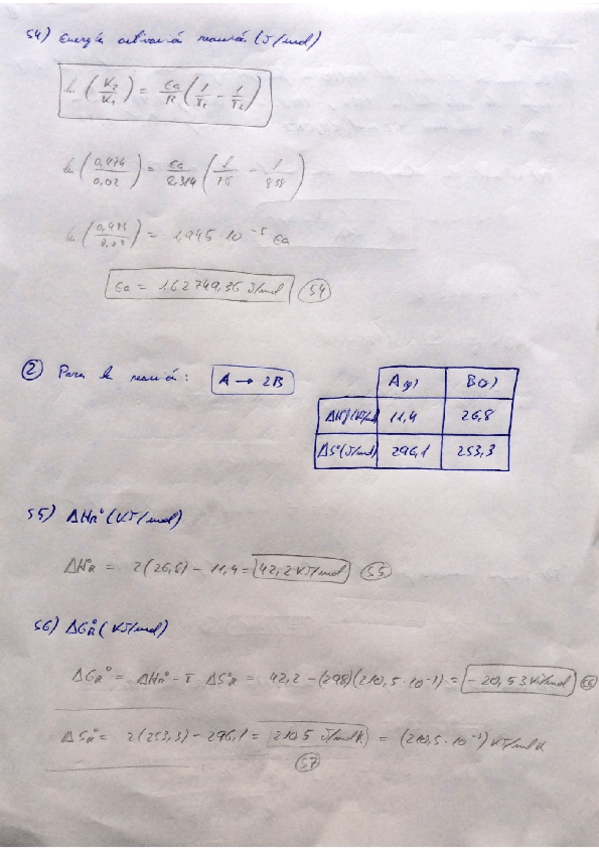 54) Energía activación reacción (J/mol)
ln (K2/K1) = Ea/R (1/T1 - 1/T2)
ln (0,474/0,02) = Ea/8,314 (1/ - 1/)
ln (/0,02) = 1,945·10^-5 Ea
Ea = 162749,36 J/mol 54
② Para la reacción: A → 2B
A(g) B(g)
ΔHf°(KJ/mol) 11,4 26,8
ΔS°(J/mol) 296,1 253,3
55) ΔHR° (KJ/mol)
ΔH°R = 2(26,8) - 11,4 = 42,2 KJ/mol 55
56) ΔG°R (KJ/mol)
ΔGR° = ΔHR° - T ΔS°R = 42,2 - (298)(210,5·10^) = -20,53 KJ/mol 56
ΔSR° = 2(253,3) - 296,1 = 210,5 J/molK = (210,5·10^) KJ/molK
57